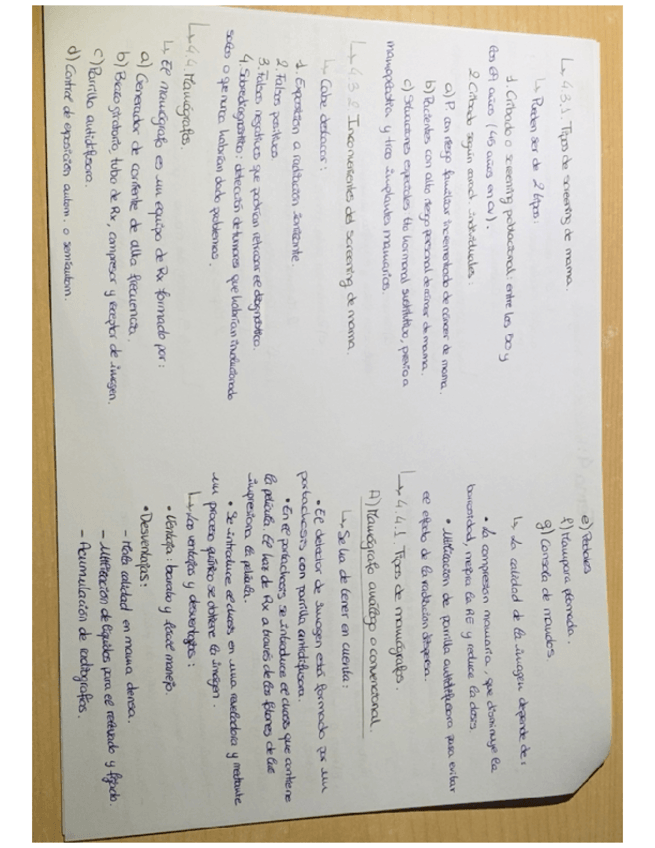 ↳ 4.3.1. Tipos de screening de mama.
↳ Pueden ser de 2 tipos:
1. Cribado o screening poblacional: entre los 50 y
los 69 años (45 años en CV).
2. Cribado según caract. individuales:
a) P. con riesgo familiar incrementado de cáncer de mama.
b) Pacientes con alto riesgo personal de cáncer de mama.
c) Situaciones especiales: tto hormonal sustitutivo, previo a
mamoplastia y tras implantes mamarios.
↳ 4.3.2 Inconvenientes del screening de mama.
↳ Cabe destacar:
1. Exposición a radiación ionizante.
2. Falsos positivos
3. Falsos negativos que podrían retrasar el diagnóstico.
4. Sobrediagnóstico: detección de tumores que habrían involucionado
solos o que nunca habrían dado problemas.
↳ 4.4. Mamógrafos.
↳ El mamógrafo es un equipo de Rx formado por:
a) Generador de corriente de alta frecuencia.
b) Brazo giratorio, tubo de Rx, compresor y receptor de imagen.
c) Parrilla antidifusora.
d) Control de exposición autom. o semiautom.
e) Pedales
f) Mampara plomada.
g) Consola de mandos.
↳ La calidad de la imagen depende de:
• La compresión mamaria, que disminuye la
borrosidad, mejora la RE y reduce la dosis
• Utilización de parrilla antidifusora para evitar
el efecto de la radiación dispersa.
↳ 4.4.1. Tipos de mamógrafos.
A) Mamógrafo análogo o convencional.
↳ Se ha de tener en cuenta:
• El detector de imagen está formado por un
portachasis con parrilla antidifusora.
• En el portachasis se introduce el chasis que contiene
la película. El haz de Rx a través de los fotones de luz
impresiona la película.
• Se introduce el chasis en una reveladora y mediante
un proceso químico se obtiene la imagen.
↳ Las ventajas y desventajas:
• Ventaja: barato y fácil manejo.
• Desventajas:
- Mala calidad en mama densa.
- Utilización de líquidos para el revelado y fijado.
- Acumulación de radiografías.